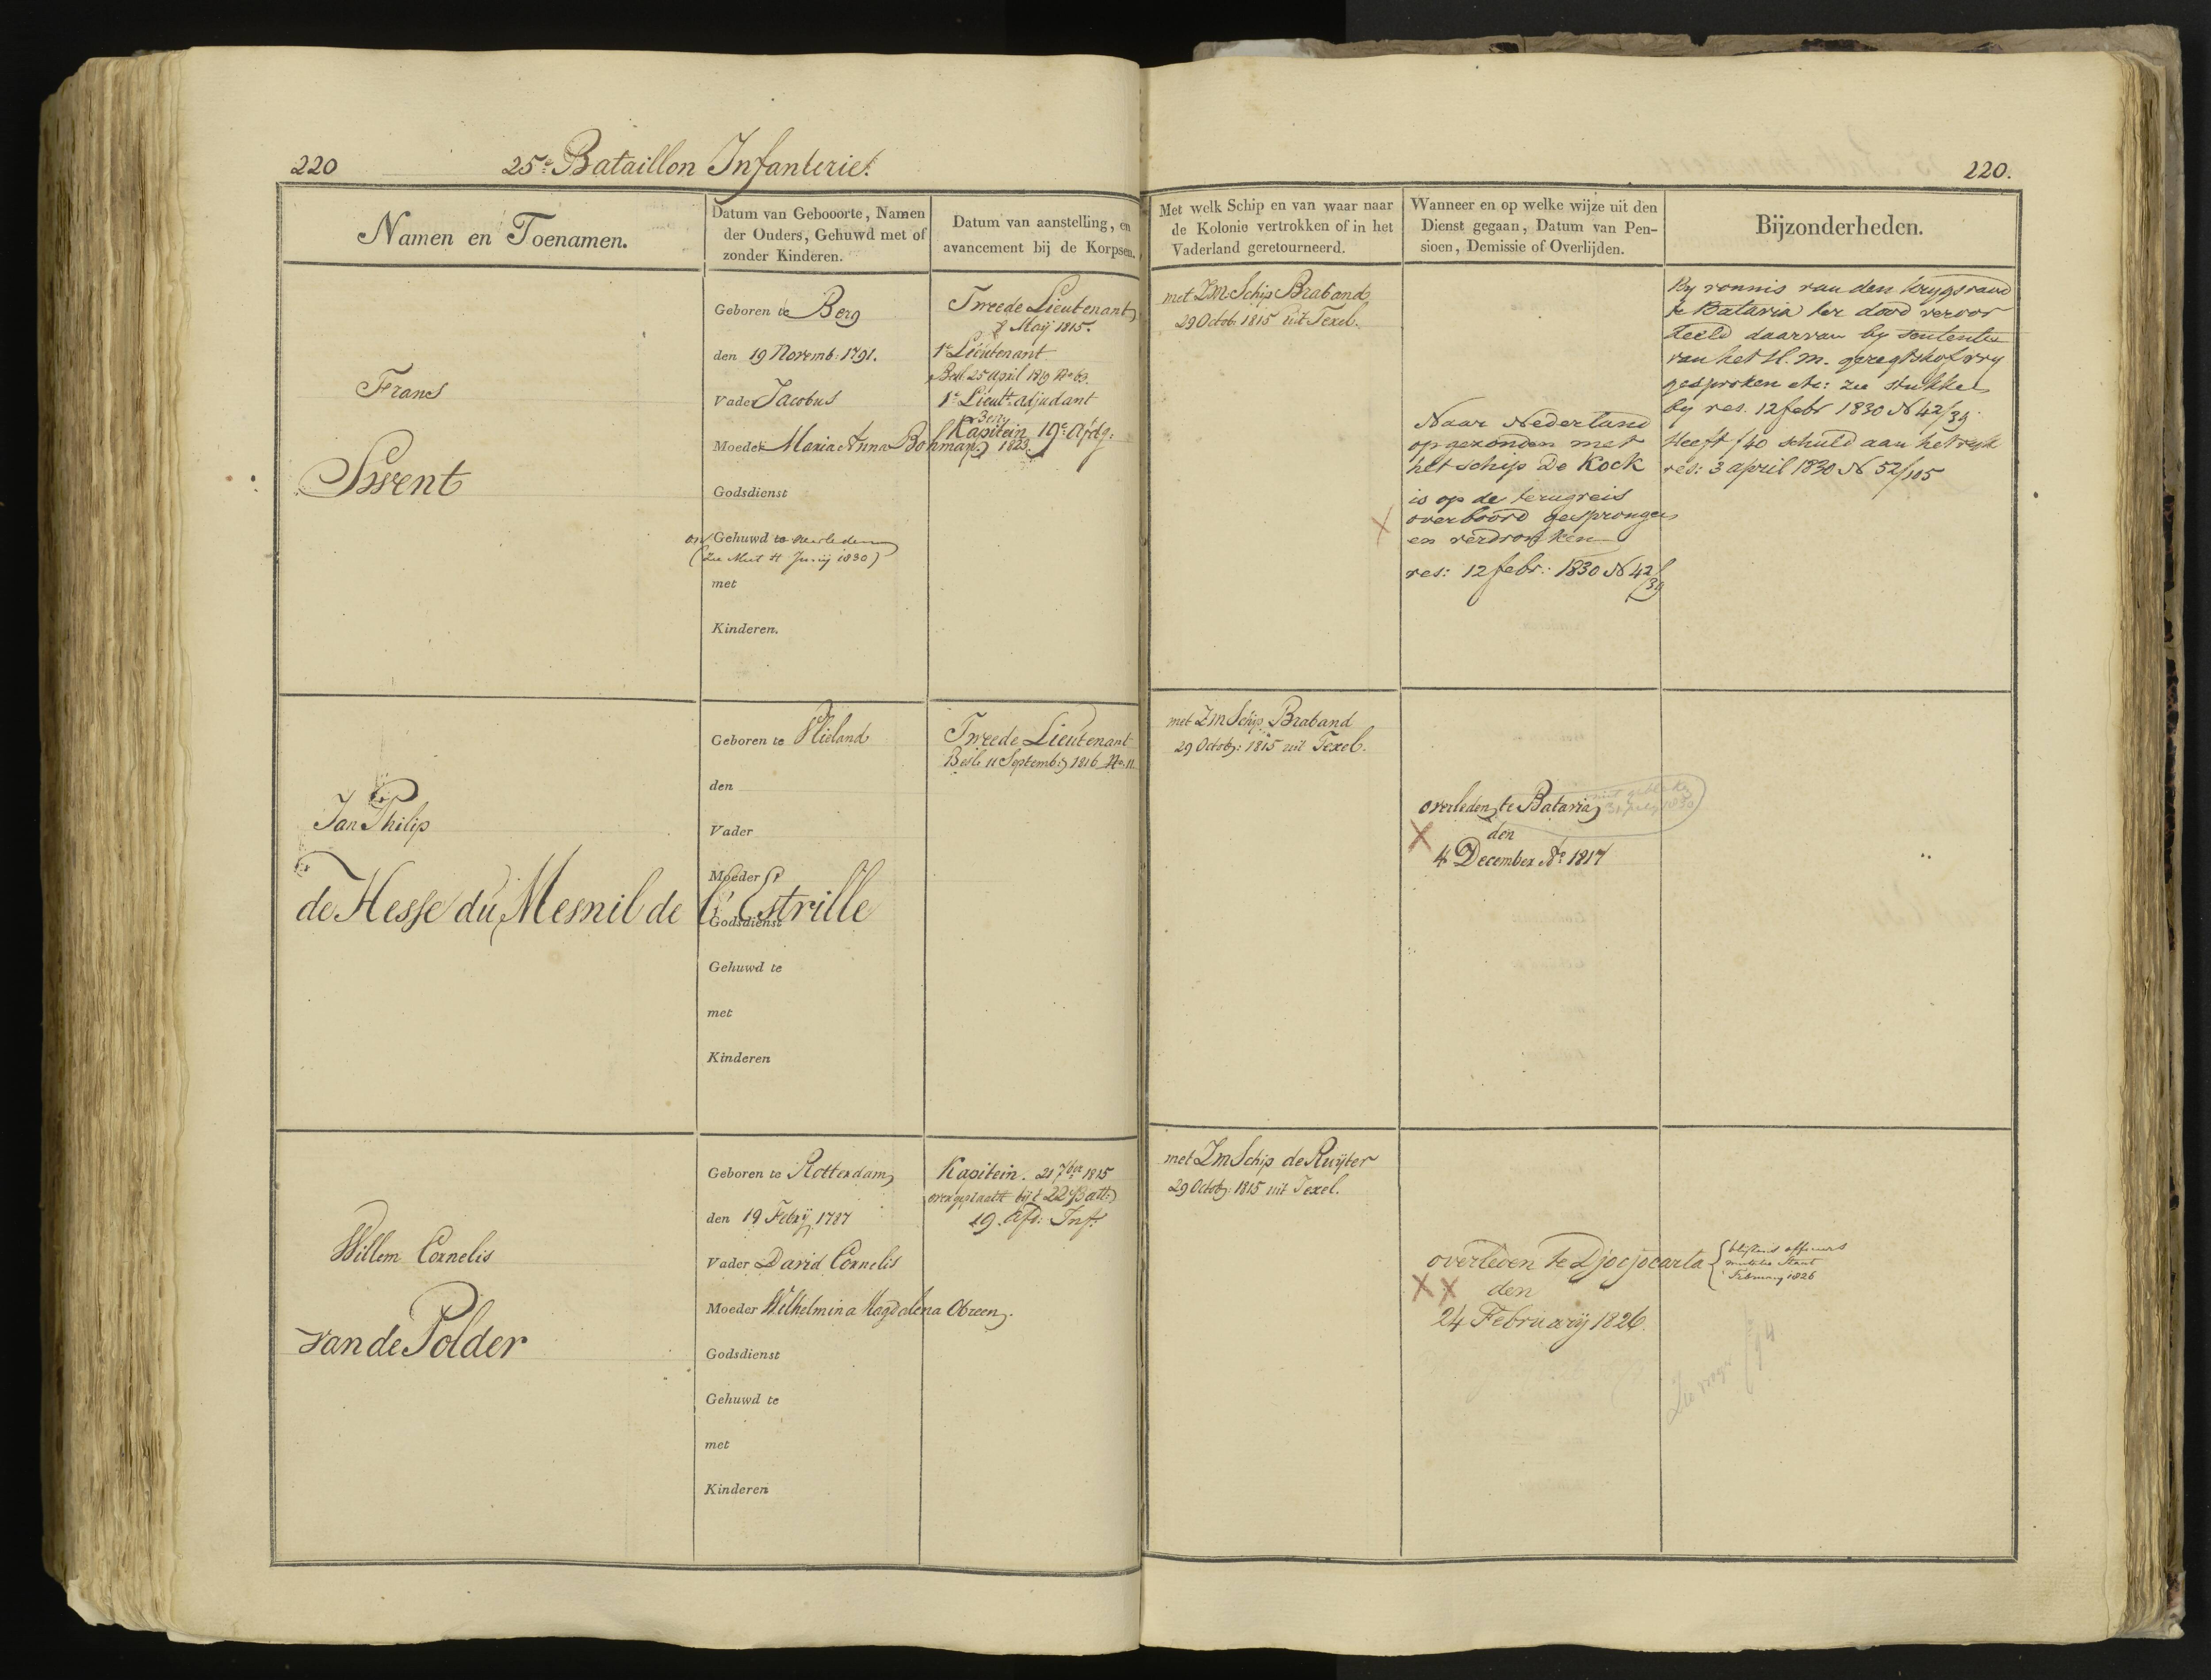 220
25e Bataillon Infanterie.
220.
Namen en Toenamen.
Datum van Gebooorte, Namen
der Ouders, Gehuwd met of
zonder Kinderen.
Datum van aanstelling, en
avancement bij de Korpsen.
Met welk Schip en van waar naar
de Kolonie vertrokken of in het
Vaderland geretourneerd.
Wanneer en op welke wijze uit den
Dienst gegaan, Datum van Pen-
sioen, Demissie of Overlijden.
Bijzonderheden.
Frans
Swent
Geboren te Berg
den 19 Novemb: 1791.
Vader Jacobus
Moeder Maria Anna Bohman
Godsdienst
on Gehuwd te overleden
(zie Mut Junij 1830)
met
Kinderen.
Tweede Lieutenant
8 Maij 1815.
1e Lieutenant
Besl 25 April 1819 No 63.
1e Lieutt. adjudant
Kapitein 19e Afdg:
1823
met ZM Schip Braband
29 Octob 1815 uit Texel.
Naar Nederland
opgezonden met
het schip De Kock
is op de terugreis
overboord gesprongen
en verdronken
res: 12 febr: 1830 N 42/39
By vonnis van den krygsraad
te Batavia ter dood veroor
deeld daarvan by sententie
van het H. M. geregtshof vry
gesproken etc: zie stukken
by res. 12 febr 1830 N 42/39.
Heeft f 40 schuld aan het ryk
res: 3 april 1830 N 52/105
Jan Philip
de Hesse du Mesnil de l'Estrille
Geboren te Vlieland
den
Vader
Moeder
Godsdienst
Gehuwd te
met
Kinderen
Tweede Lieutenant
Besl: 11 Septemb: 1816 No. 11
met ZM Schip Braband
29 Octob: 1815 uit Texel.
overleden te Batavia
den
4 December Ao 1817
Willem Cornelis
van de Polder
Geboren te Rotterdam
den 19 Febrij 1787
Vader David Cornelis
Moeder Wilhelmina Magdalena Obreen.
Godsdienst
Gehuwd te
met
Kinderen
Kapitein. 21 7ber 1815
overgeplaatst bij t 22e Batt:
19. Afd: Inf.
met ZM Schip de Ruijter
29 Octob: 1815 uit Texel.
overleden te Djocjocarta
den
24 February 1826.
blijkens officiers
mutatie Staat
February 1826